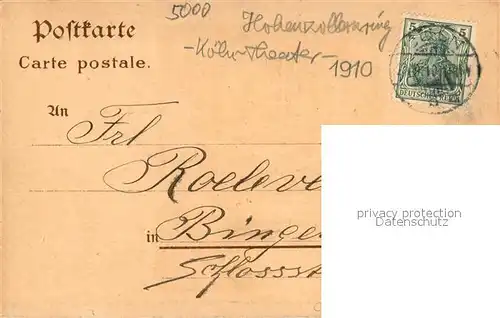 5000
Hohenzollernring
Postkarte
-Köln-Theater-
1910
Carte postale.
5
5
DEUTSCHES REICH
An
Frl
Roeleve
in Binge
Schlossst
privacy protection
Datenschutz